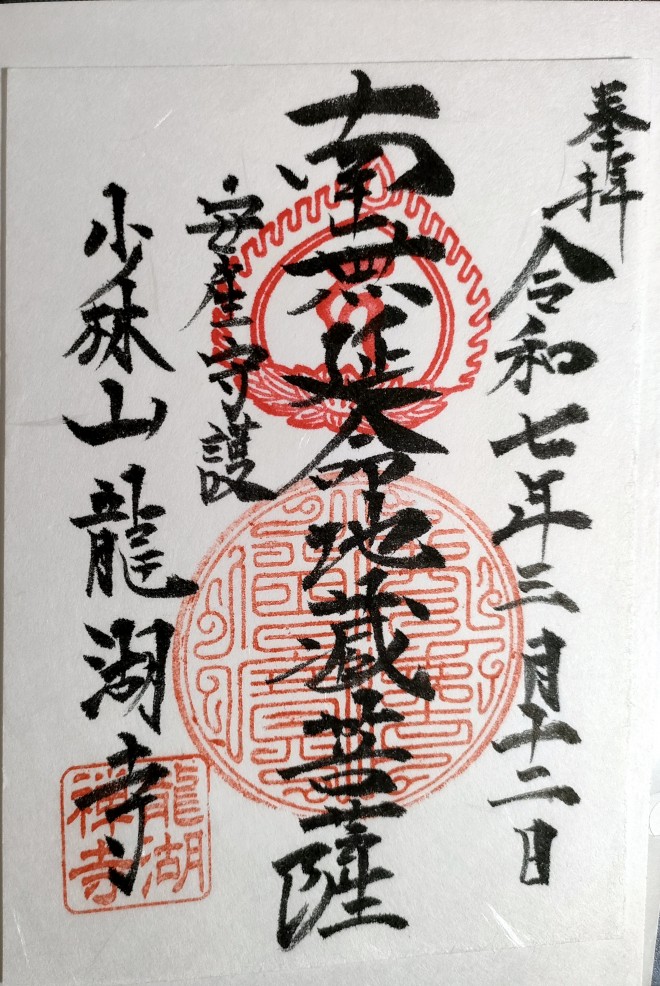 奉拝
令和七年三月十二日
南無延命地蔵菩薩
安産守護
少林山龍湖寺
龍湖
禅寺